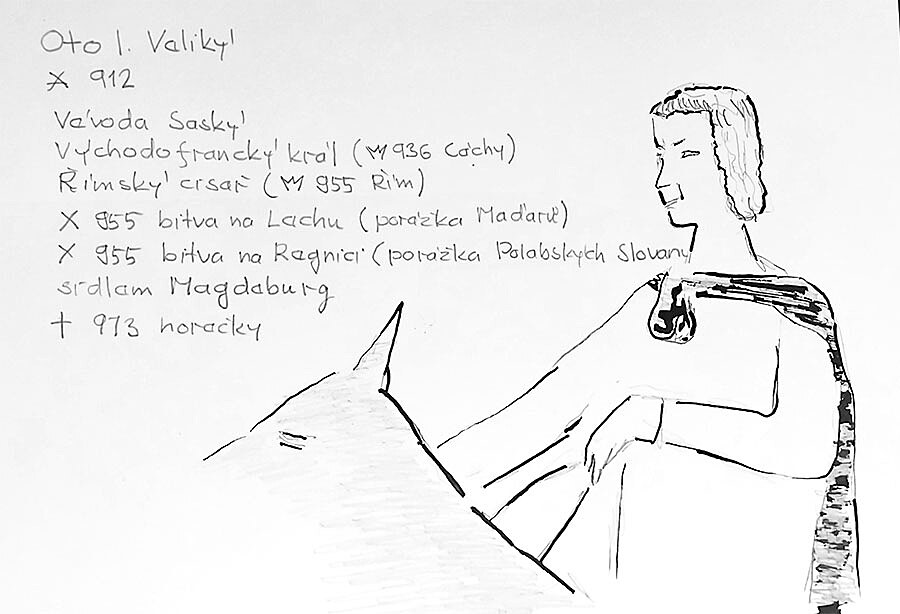 Oto I. Veliký
* 912
Vévoda Saský
Východofrancký král (♔ 936 Cáchy)
Římský císař (♔ 955 Řím)
X 955 bitva na Lechu (porážka Maďarů)
X 955 bitva na Regnici (porážka Polabských Slovany
sídlem Magdeburg
† 973 horečky